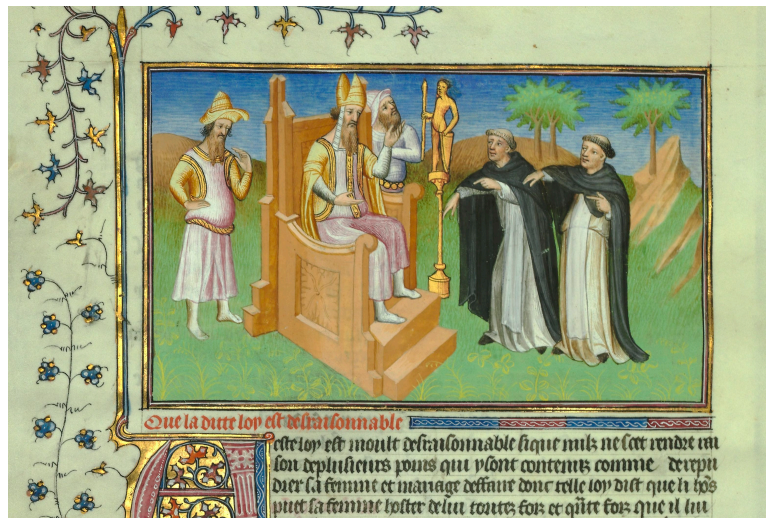 Que la dicte loy est desraisonnable
este loy est moult desraisonnable sique nulz ne scet rendre rai
son deplusieurs poins qui ysont contenuz comme derepu
dier sa femme et mariage deffaire donc telle loy dist que li hõs
puet sa femme hoster de lui toutes fois et q̃nte fois que il lui